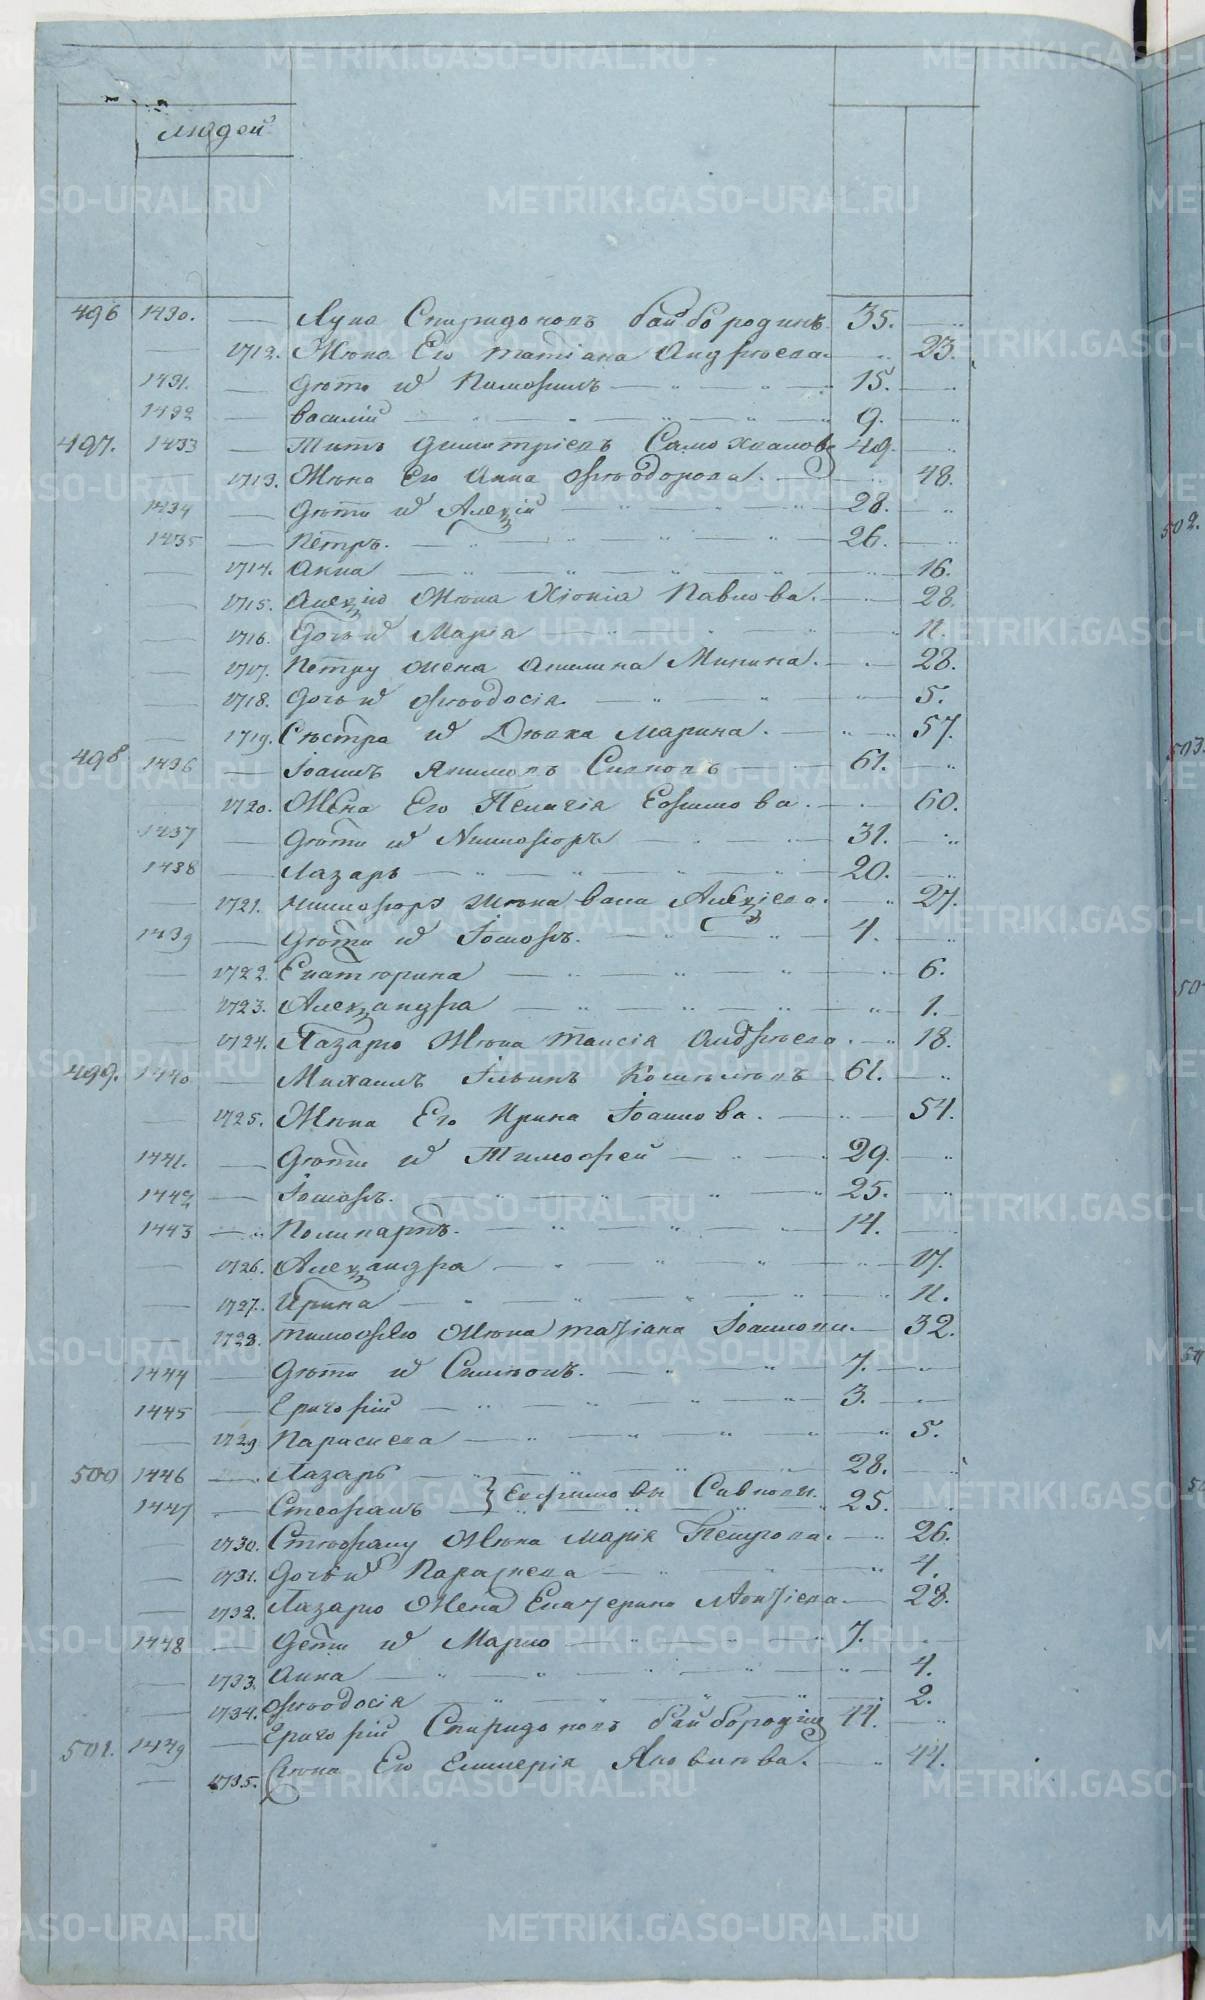 людей
496 1430. — Лука Спиридоновъ Байбородинъ. 35. — "
— 1712. Жѣна Его Татіана Андрѣева. — " 23.
1431. — Дѣти и҆хъ Никифоръ — " — " — 15. — "
1432 — Василій — " — " — " 9. — "
497. 1433 — Титъ Димитріевъ Самохвалов 49. — "
— 1713. Жѣна Его Анна Ѳѣодорова. — " 48.
1434 — Дѣти Алексій — " — " — 28. — "
1435 — Пётръ. — " — " — " 26. — "
— 1714. Анна — " — " — " — 16.
— 1715. Алексію Жѣна Хіонія Павлова. — " 28.
— 1716. Дочь Марія — " — " — 11.
— 1717. Петру жена Акилина Минина. — " 28.
— 1718. Дочь Ѳѣодосія — " — " — 5.
— 1719. Сѣстра Дѣвка Марина. — " — 57.
498 1436 — Іоаннъ Якимовъ — 61. — "
— 1720. Жена Его Пелагія Ефимова. — " 60.
1437 — Дѣти Никифоръ — " — 31. — "
1438 — Лазарь — " — " — " 20. — "
— 1721. Никифору Жѣна Алексіева. — " 27.
1439 — Дѣти Іосифъ. — " — " 4. — "
— 1722. Екатѣрина — " — " — 6.
— 1723. Александра — " — " — 1.
— 1724. Лазарю Жѣна Таисія Андрѣева. — " 18.
499. 1440 — Михаилъ Ильинъ — 61. — "
— 1725. Жѣна Его Ирина Іоаннова. — " 54.
1441. — Дѣти Тимофей — " — 29. — "
1442 — Іосифъ. — " — " — " 25. — "
1443 — " Поликарпъ. — " — " — 14. — "
— 1726. Александра — " — " — 17.
— 1727. Ирина — " — " — " 11.
— 1728. Тимофею Жѣна Татіана Іоаннова. — 32.
1444 — Дѣти Симѣонъ. — " — " 7. — "
1445 — Григорій — " — " — " 3. — "
— 1729 Параскева — " — " — " 5.
500 1446 — Лазарь — " — " 28. — "
1447 — Стефанъ — } Ефимовы 25. — "
— 1730. Стѣфану Жѣна Марія Петрова. — " 26.
— 1731. Дочь Параскева — " — " 4.
— 1732. Лазарю Жена Екатерина — 28.
1448 — Дети — " — " — 7. — "
— 1733. Анна — " — " — " 4.
— 1734. Ѳѣодосія — " — " — 2.
501. 1449 — Григорій Спиридоновъ Байбородин 44. — "
— 1735. Жѣна Его Яковлѣва. — " 44.
502.
503.